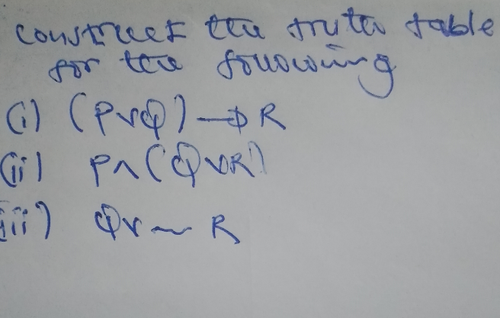 construct the truth table
for the following
(i) (PVQ) → R
(ii) P ∧ (QVR)
(iii) QV ~ R